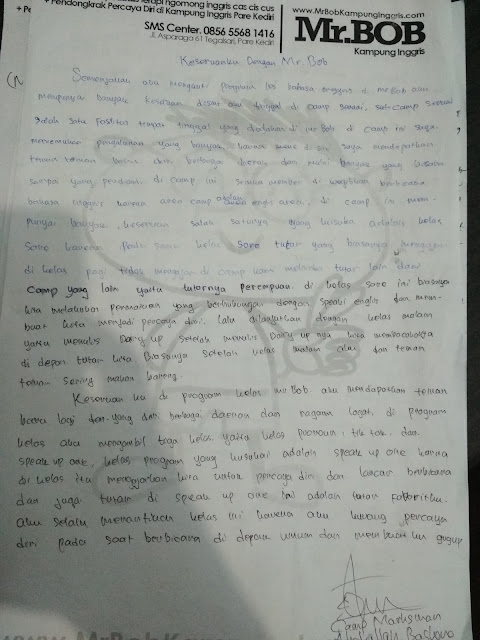 terapi ngomong inggris cas cis cus
+ Pendongkrak Percaya Diri di Kampung Inggris Pare Kediri
SMS Center. 0856 5568 1416
Jl. Asparaga 61 Tegalsari, Pare Kediri
www.MrBobKampungInggris.com
Mr.BOB
Kampung Inggris
Keseruanku Dengan Mr. Bob
Semenjak aku mengikuti program les bahasa inggris di mr Bob aku
mempunyai banyak keseruan disaat aku tinggal di camp
salah satu fasilitas tempat tinggal yang disediakan di mr Bob di camp ini saya
menemukan pengalaman yang banyak di saya mendapatkan
teman teman baru dari berbagai daerah dan mulai banyak yang
sampai yang pendiam. di camp ini semua member di wajibkan berbicara
bahasa inggris karena area camp adalah english area. di camp ini mem-
punyai banyak keseruan salah satunya yang kusuka adalah kelas
sore karena pada saat kelas sore tutor yang biasanya mengajar
di kelas pagi tidak mengajar di camp kami melainkan tutor lain dari
camp yang lain yaitu tutornya perempuan. di kelas sore ini biasanya
kita melakukan permainan yang berhubungan dengan speak english dan mem-
buat kita menjadi percaya diri. lalu dilanjutkan dengan kelas malam
yaitu menulis Dairy up setelah menulis Dairy up nya kita membacakannya
di depan tutor kita Biasanya setelah kelas malam aku dan teman
teman sering makan bareng.
Keseruan ku di program kelas mr Bob aku mendapatkan teman
baru lagi dari berbagai daerah dan ragam logat, di program
kelas aku mengambil tiga kelas yaitu kelas pronoun, tik tok, dan
speak up one, kelas program yang kusukai adalah speak up one karna
di kelas itu mengajarkan kita untuk percaya diri dan lancar berbicara
dan juga tutor di speak up one ini adalah tutor faporitku.
aku selalu menantikan kelas ini karena aku kurang percaya
diri pada saat berbicara di depan umum dan membuat ku gugup
Camp Marksman